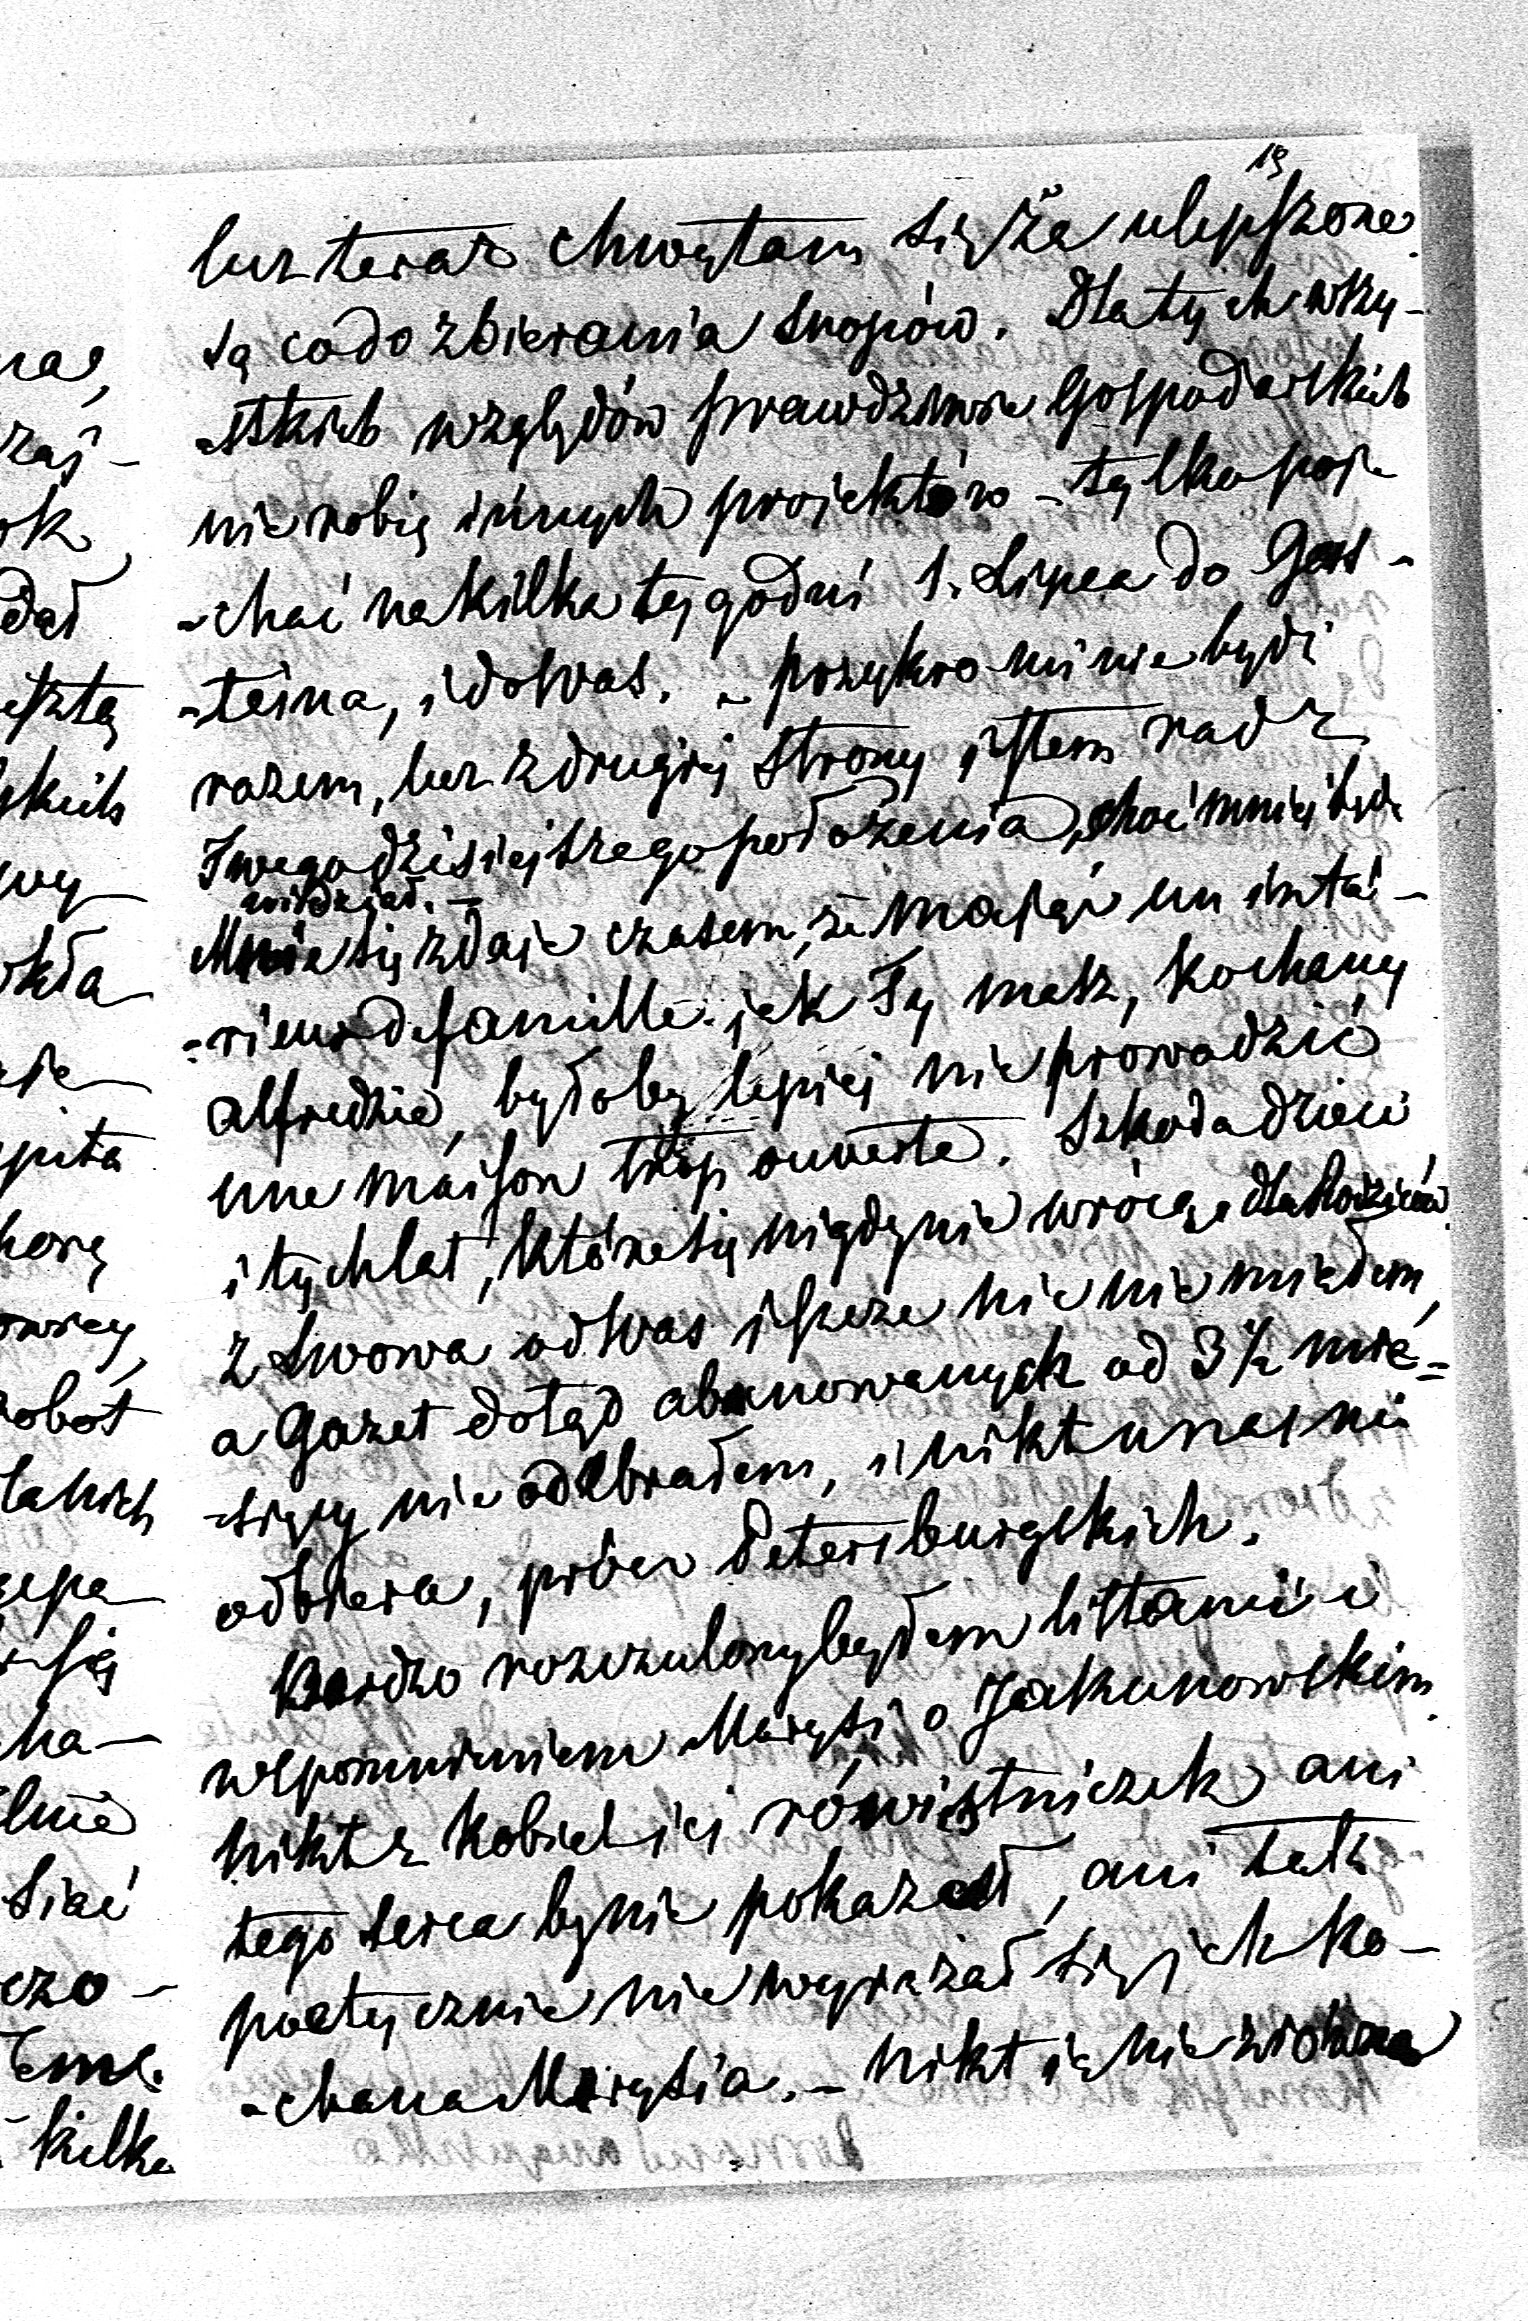 19
lecz teraz chwytam się że ulepszone
są co do zbierania snopów. Dla tych wszy-
-stkich względów prawdziwie Gospodarskich
nie robię innych projektów – tylko poje-
-chać na kilka tygodni 1. Lipca do Gas-
-teina, i do Was. – przykro mi nie być
razem, lecz z drugiej strony jestem rad z
Twego dzisiejszego położenia, choć mniej będę
widział. –
Mnie się zdaje czasem, że mając un inté-
-rieur de famille jak Ty masz, kochany
Alfredzie, byłoby lepiej nie prowadzić
une maison trop ouverte. Szkoda dzieci
i tych lat, które się nigdy nie wrócą dla Rodziców.
Z Lwowa od Was jeszcze nic nie miałem,
a Gazet dotąd abonowanych od 3 ½ mie-
-sięcy nie odebrałem, i nikt u nas nie
odbiera, prócz Petersburgskich.
Bardzo rozczulony byłem littanii i
wspomnieniem Marysi o Jakunowskim.
nikt z kobiet jej rówiestniczek ani
tego serca by nie pokazał, ani tak
poetycznie nie wyrażał się jak ko-
-chana Marysia. – nikt ją nie
nas,
zaś –
ok
dał
kich
wy–
okła
pita
horę
robot
takich
ha–
lnie
siać
czo –
kilka